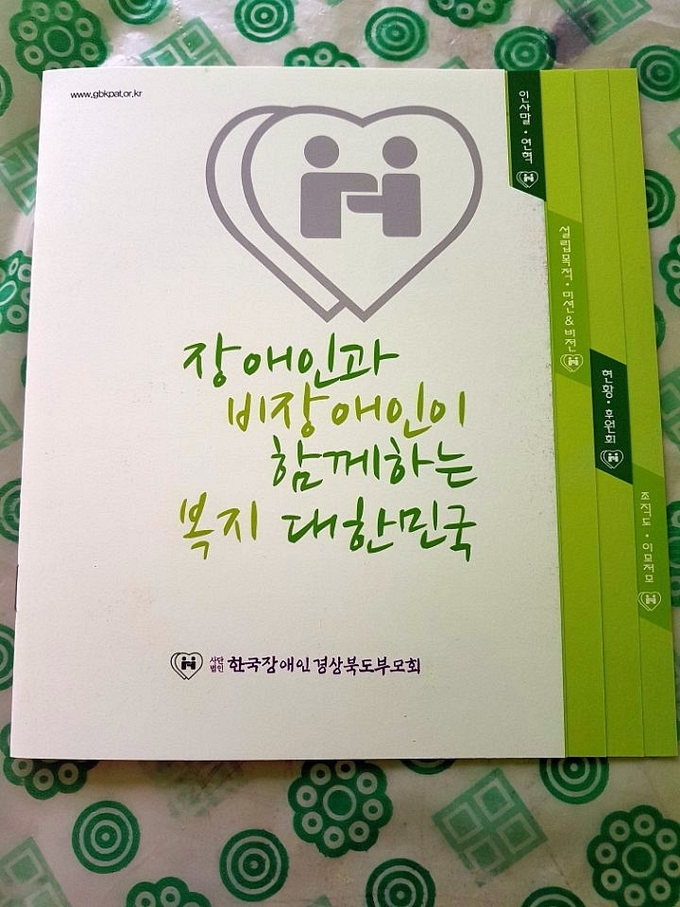 www.gbkpat.or.kr
장애인과
비장애인이
함께하는
복지 대한민국
사단
법인 한국장애인경상북도부모회
인사말 · 연혁
설립목적 · 미션 & 비전
현황 · 후원회
조직도 · 이모저모